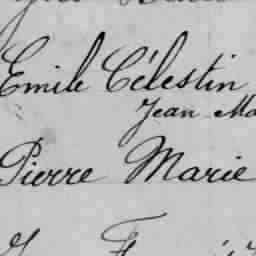 Emile Célestin
Jean Ma
Pierre Marie